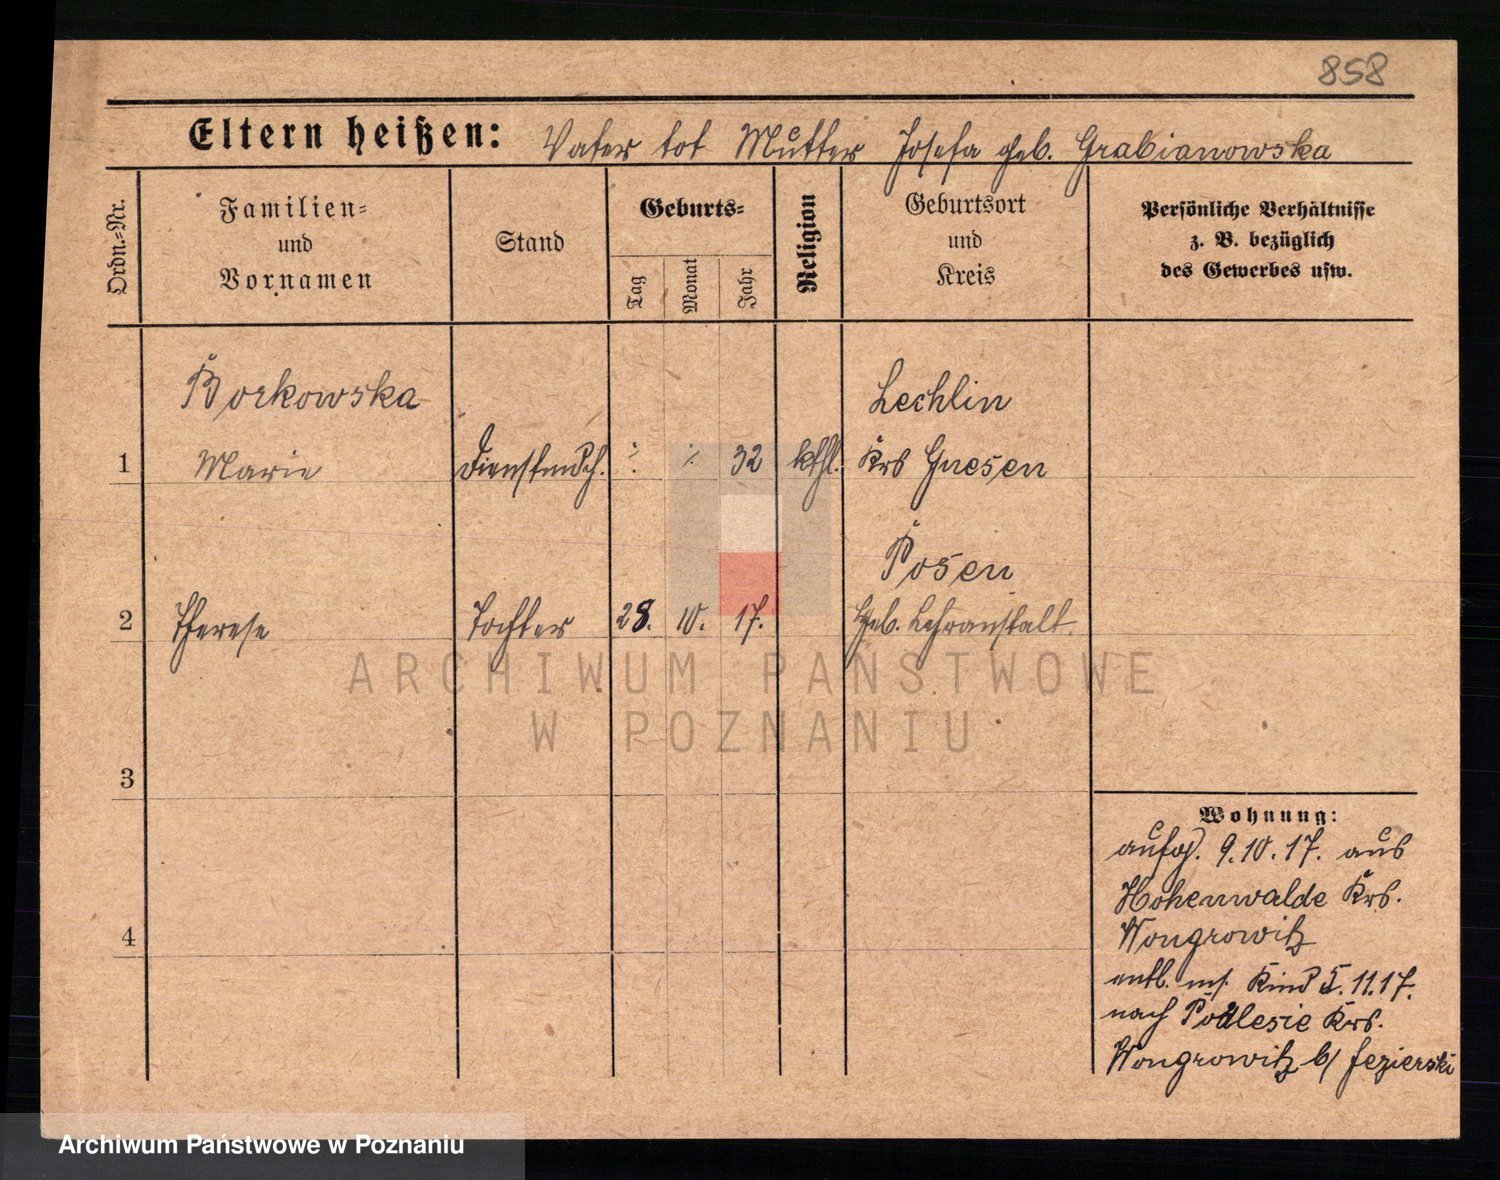 858
Eltern heißen: Vater tot Mutter Josefa geb. Grabianowska
Ordn.-Nr.
Familien-
und
Vornamen
Stand
Geburts-
Tag
Monat
Jahr
Religion
Geburtsort
und
Kreis
Persönliche Verhältnisse
z. B. bezüglich
des Gewerbes usw.
Borkowska
Lechlin
1 Marie Dienstmdch. ./. ./. 32 kthl. Krs Gnesen
Posen
2 Therese Tochter 28. 10. 17. Heb. Lehranstalt.
ARCHIWUM PAŃSTWOWE
W POZNANIU
3
4
Wohnung:
aufg. 9.10.17. aus
Hohenwalde Krs.
Wongrowitz
entl. mt. Kind 5.11.17.
nach Podlesie Krs.
Wongrowitz b/ Jezierski
Archiwum Państwowe w Poznaniu